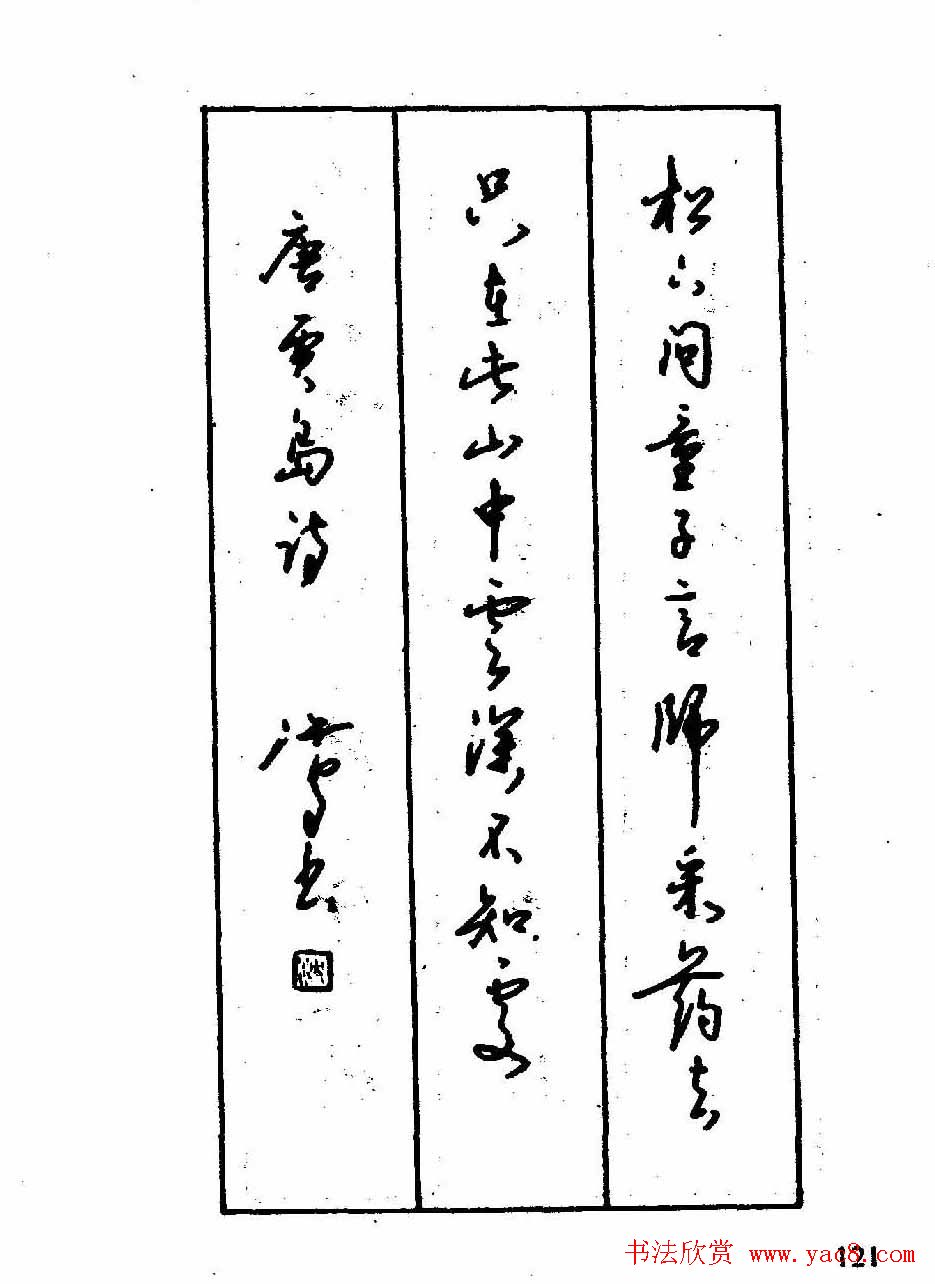 松下问童子言師采药去
只在此山中雲深不知處
唐贾岛诗 书
书法欣赏 www.yac8.com
121